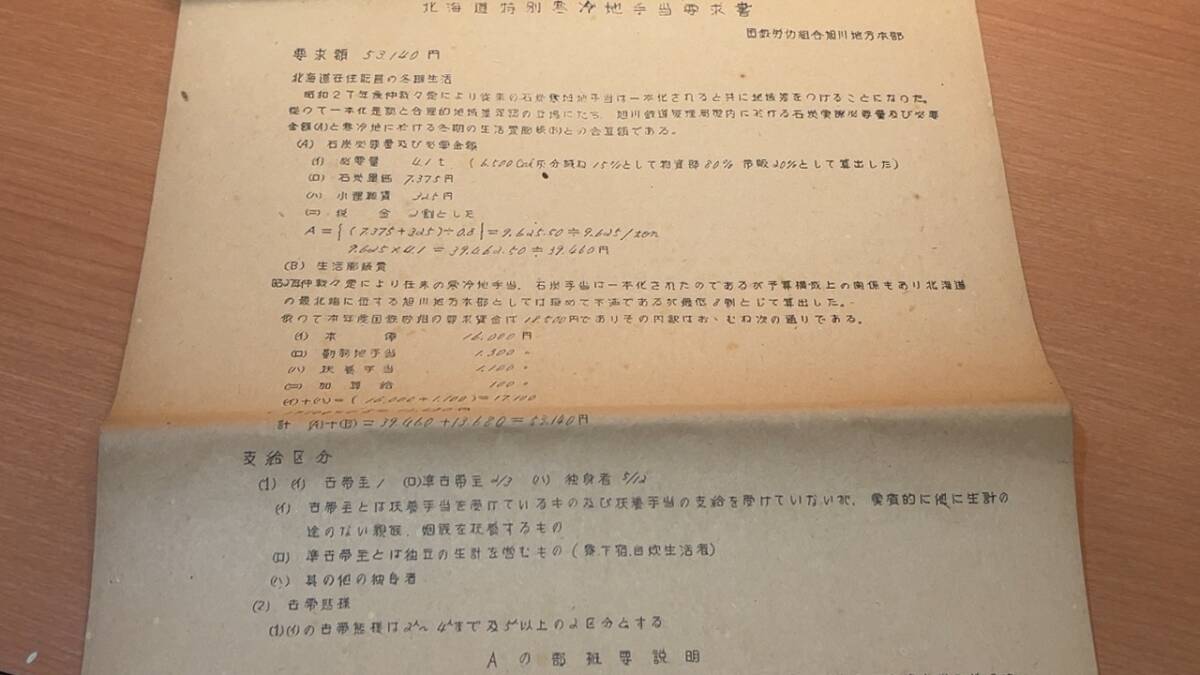 北海道特別寒冷地手当要求書
国鉄労仂組合旭川地方本部
要求額 53.140円
北海道在住配置の冬期生活
昭和27年度仲裁々定により従来の石炭寒冷地手当は一本化されると共に地域差をつけることになった。
従って一本化是期と合理的地域差確認の立場にたち、旭川鉄道管理局管内に於ける石炭実際必要量及び必要
金額(A)と寒冷地に於ける冬期の生活費膨脹(B)との合算額である。
(A) 石炭必要量及び必要金額
(イ) 必要量 4.1t (6.500Cal灰分概ね15%として物資部80% 市販20%として算出した)
(ロ) 石炭単価 7.375円
(ハ) 小運搬賃 325円
(ニ) 税金 2割とした
A={(7.375+325)÷0.8}=9.625.50≑9.625/ton
9.625×4.1=39.462.50≑39.460円
(B) 生活膨脹費
昭27年仲裁々定により在来の寒冷地手当、石炭手当は一本化されたのであるが予算構成上の関係もあり北海道
の最北端に位する旭川地方本部としては極めて不満であるが最低8割として算出した。
従って本年度国鉄労組の要求賃金は18.500円でありその内訳はおゝむね次の通りである。
(イ) 本俸 16.000円
(ロ) 勤務地手当 1.300〃
(ハ) 扶養手当 1.100〃
(ニ) 加算給 100〃
(イ)+(ハ)=(16.000+1.100)=17.100
計 (A)+(B)=39.460+13.680=53.140円
支給区分
(1) (イ) 世帯主1 (ロ)準世帯主2/3 (ハ) 独身者5/12
(イ) 世帯主とは扶養手当を受けているもの及び扶養手当の支給を受けていないが、実質的に他に生計の
途のない親族、姻族を扶養するもの
(ロ) 準世帯主とは独立の生計を営むもの(寮、下宿、自炊生活者)
(ハ) 其の他の独身者
(2) 世帯態様
(1)(イ)の世帯態様は2人〜4人まで及5人以上の2区分とする
Aの部概要説明